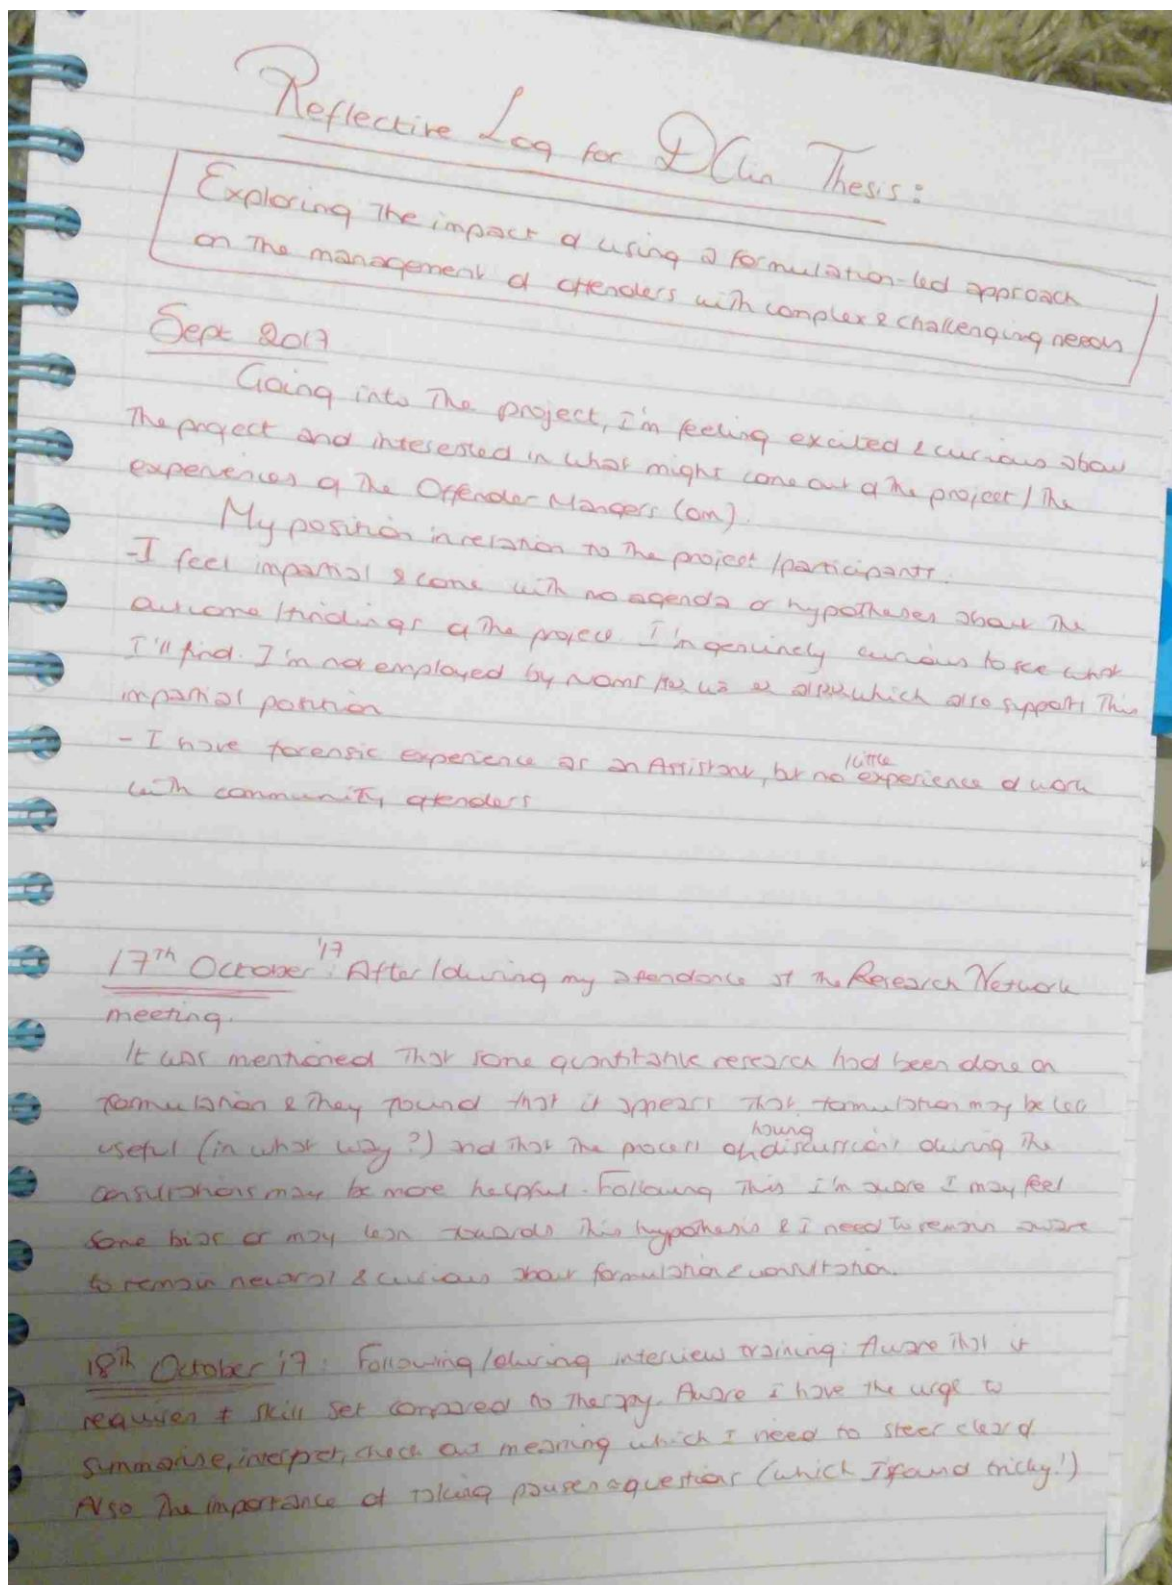 Reflective Log for DClin Thesis:
Exploring the impact of using a formulation-led approach
on the management of offenders with complex & challenging needs
Sept 2017
Going into the project, I'm feeling excited & curious about
the project and interested in what might come out of the project / the
experiences of the Offender Mangers (om).
My position in relation to the project /participants.
-I feel impartial & come with no agenda or hypotheses about the
outcome /findings of the project. I'm genuinely curious to see what
I'll find. I'm not employed by noms which also supports this
impartial position
- I have forensic experience as an Assistant, but no little experience of work
with community offenders
17th October '17: After/during my attendance at the Research Network
meeting.
It was mentioned that some quantitative research had been done on
formulation & they found that it appears that formulation may be less
useful (in what way?) and that the process of having discussions during the
consultations may be more helpful. Following this i'm aware I may feel
some bias or may lean towards this hypothesis & I need to remain aware
to remain neutral & curious about formulation & consultation.
18th October '17: Following/during interview training: Aware that it
requires ≠ skill set compared to therapy. Aware i have the urge to
summarise, interpret, check out meaning which I need to steer clear of
Also the importance of taking pauses questions (which I found tricky!)